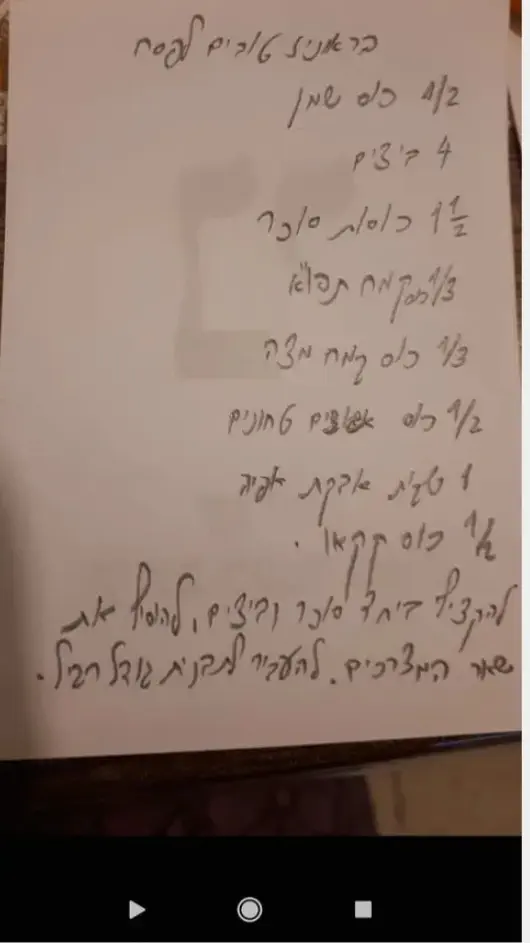 בראוניז טובים לפסח
1/2 כוס שמן
4 ביצים
1 1/2 כוסות סוכר
1/3 כוס קמח תפו"א
1/3 כוס קמח מצה
1/2 כוס אגוזים טחונים
1 שקית אבקת אפיה
1/2 כוס קקאו.
להקציף ביחד סוכר וביצים, להוסיף את
שאר המצרכים. להעביר לתבנית גודל רגיל.